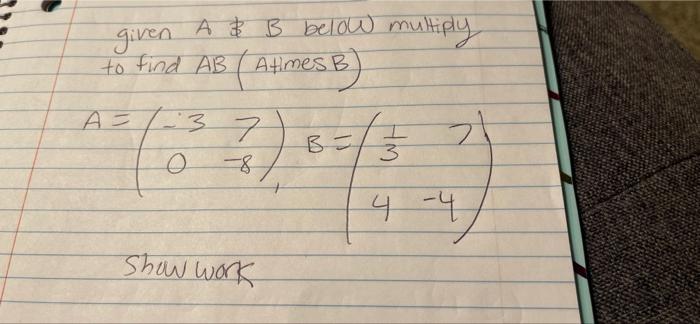 given A & B below multiply
to find AB (AtimesB)
A = ( -3 7
0 -8 ), B = ( 1/3 7
4 -4 )
Show work